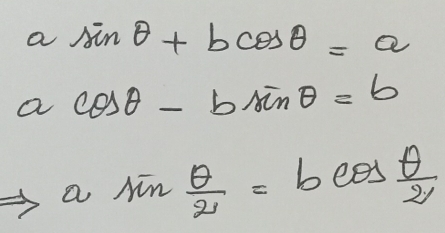 a sin θ + b cos θ = a
a cos θ - b sin θ = b
⇒ a sin θ/2 = b cos θ/2